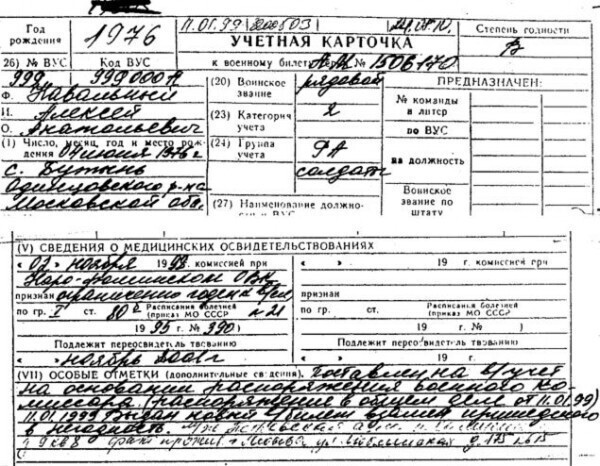 11.01.99 200603
Год рождения 1976
УЧЕТНАЯ КАРТОЧКА
к военному билету АН № 1506170
Степень годности В
26) № ВУС Код ВУС
999 999000А
Ф. Навальный
И. Алексей
О. Анатольевич
(1) Число, месяц, год и место рождения 04 июня 1976 г
с. Бутынь
Одинцовского р-на
Московской обл.
(20) Воинское звание рядовой
(23) Категория учета 2
(24) Группа учета РА
солдаты
(27) Наименование должно-
ПРЕДНАЗНАЧЕН:
№ команды и литер
по ВУС
на должность
Воинское звание по штату
(V) СВЕДЕНИЯ О МЕДИЦИНСКИХ ОСВИДЕТЕЛЬСТВОВАНИЯХ
« 03 » ноября 1998 комиссией при
Наро-Фоминском ОВК
признан ограниченно годен к
по гр. I ст. 80 Расписания болезней (приказ МО СССР
1995 г. № 390)
Подлежит переосвидетельствованию
ноябрь 2001 г
« » 19 г. комиссией при
признан
по гр. ст. Расписания болезней (приказ МО СССР
19 г. №)
Подлежит переосвидетельствованию
« » 19 г.
(VII) ОСОБЫЕ ОТМЕТКИ (дополнительные сведения). Поставлен на в/учет
на основании распоряжения военного ко-
миссара (распоряжение в общем деле от 11.01.99)
11.01.1999 Выдан новый в/билет взамен пришедшего
в негодность.
факт. прожив. г. Москва ул. Люблинская д. 175